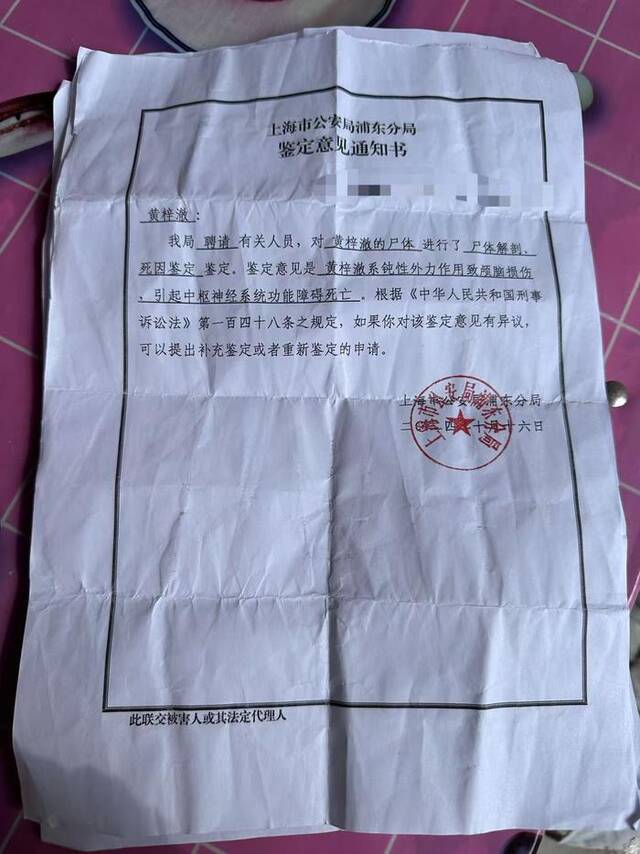 上海市公安局浦东分局
鉴定意见通知书
黄梓澈：
我局 聘请 有关人员，对 黄梓澈的尸体 进行了 尸体解剖、
死因鉴定 鉴定。鉴定意见是 黄梓澈系钝性外力作用致颅脑损伤
，引起中枢神经系统功能障碍死亡 。根据《中华人民共和国刑事
诉讼法》第一百四十八条之规定，如果你对该鉴定意见有异议，
可以提出补充鉴定或者重新鉴定的申请。
上海市公安局浦东分局
二〇二四 十月十六日
此联交被害人或其法定代理人